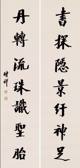 書探隱景行神足
丹轉流珠讖聖胎